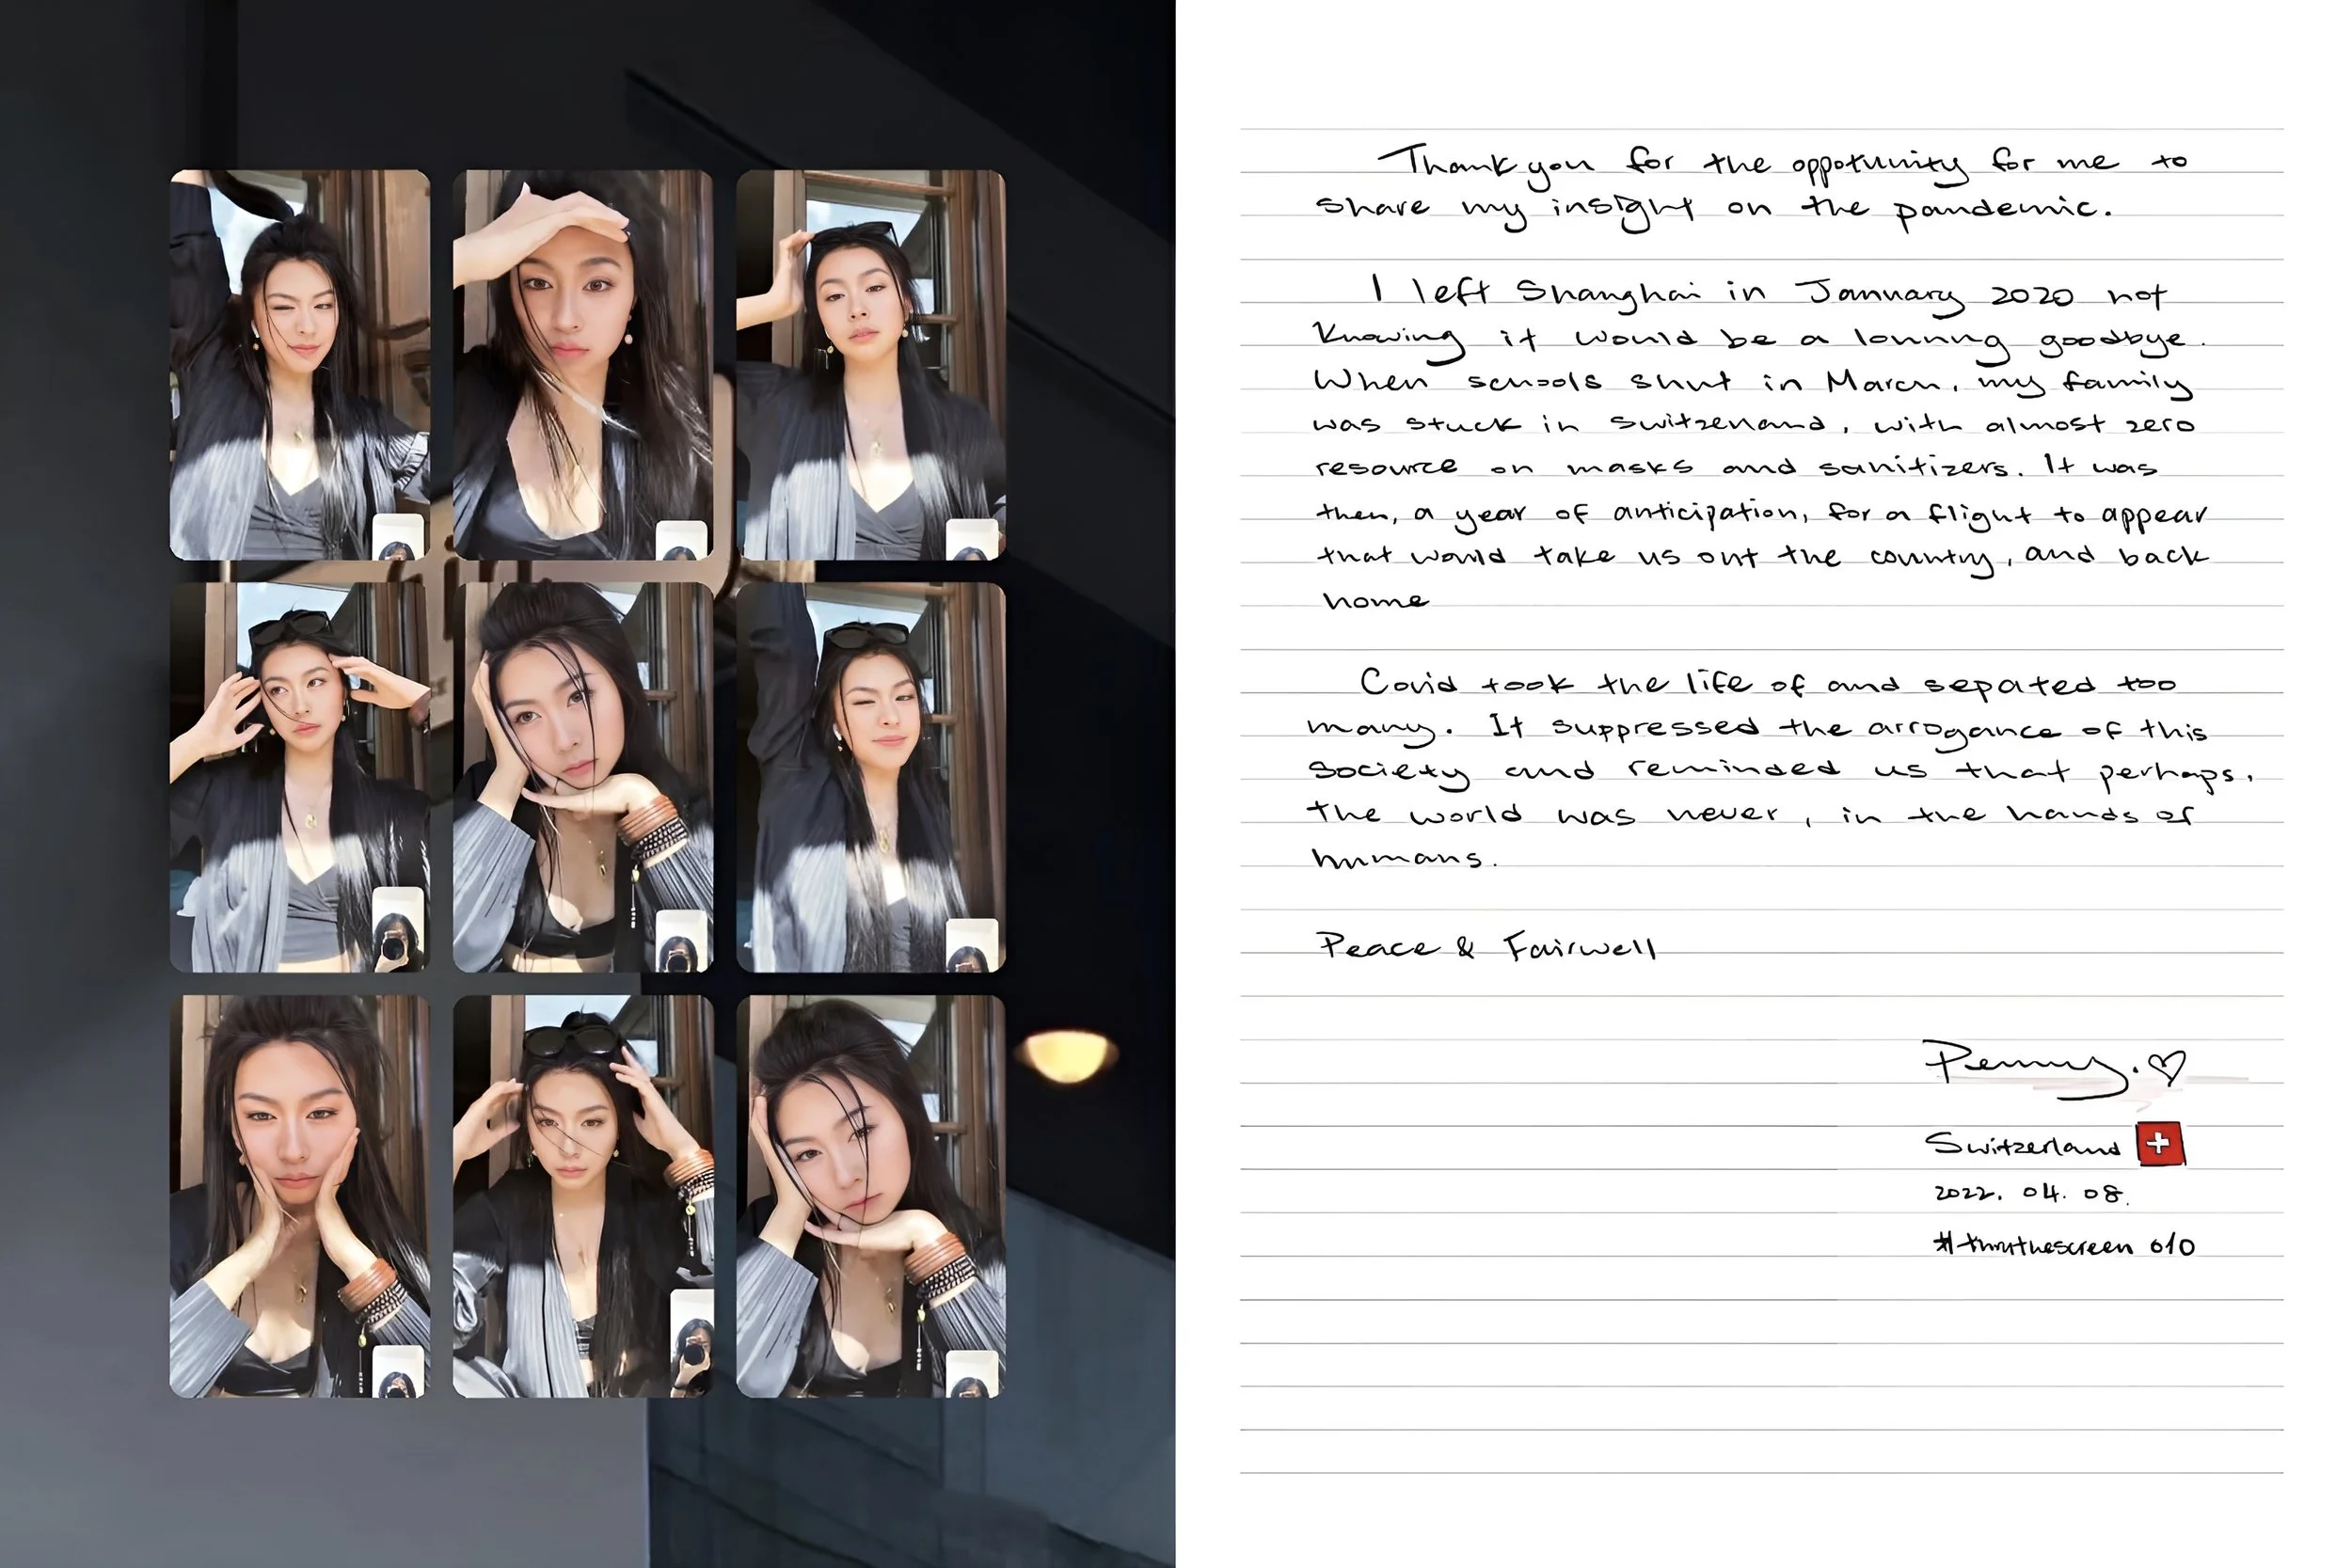 Thank you for the oppotunity for me to
share my insight on the pandemic.
I left Shanghai in January 2020 not
knowing it would be a lonnng goodbye.
When schools shut in March, my family
was stuck in Switzerland, with almost zero
resource on masks and sanitizers. It was
then, a year of anticipation, for a flight to appear
that would take us out the country, and back
home
Covid took the life of and sepated too
many. It suppressed the arrogance of this
society and reminded us that perhaps,
the world was never, in the hands of
humans.
Peace & Fairwell
Penny.
Switzerland
2022. 04. 08.
#thruthescreen 010